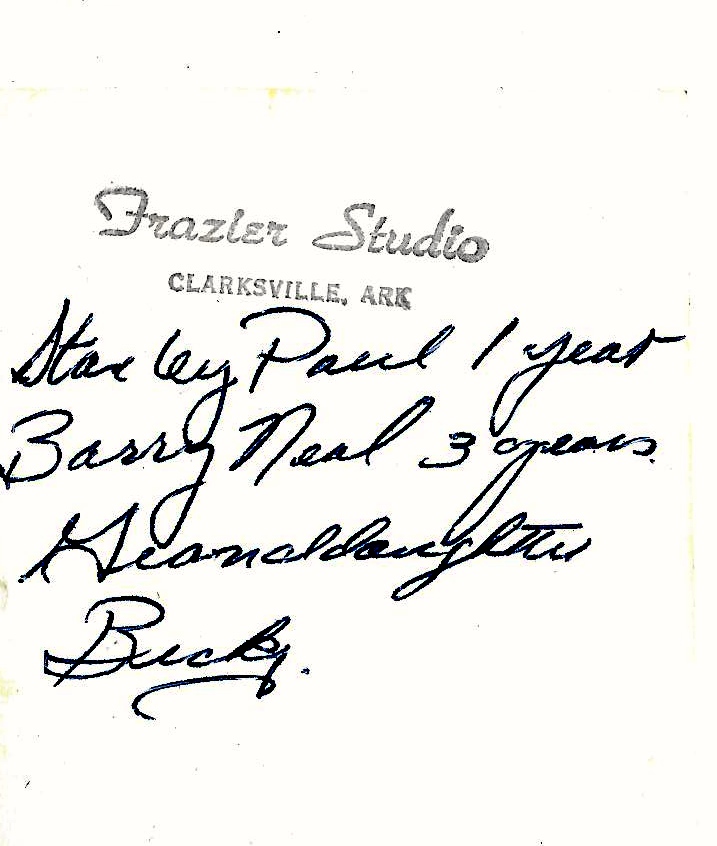 Frazier Studio
CLARKSVILLE, ARK
Stanley Paul 1 year
Barry Neal 3 years.
Granddaughter
Bucky.